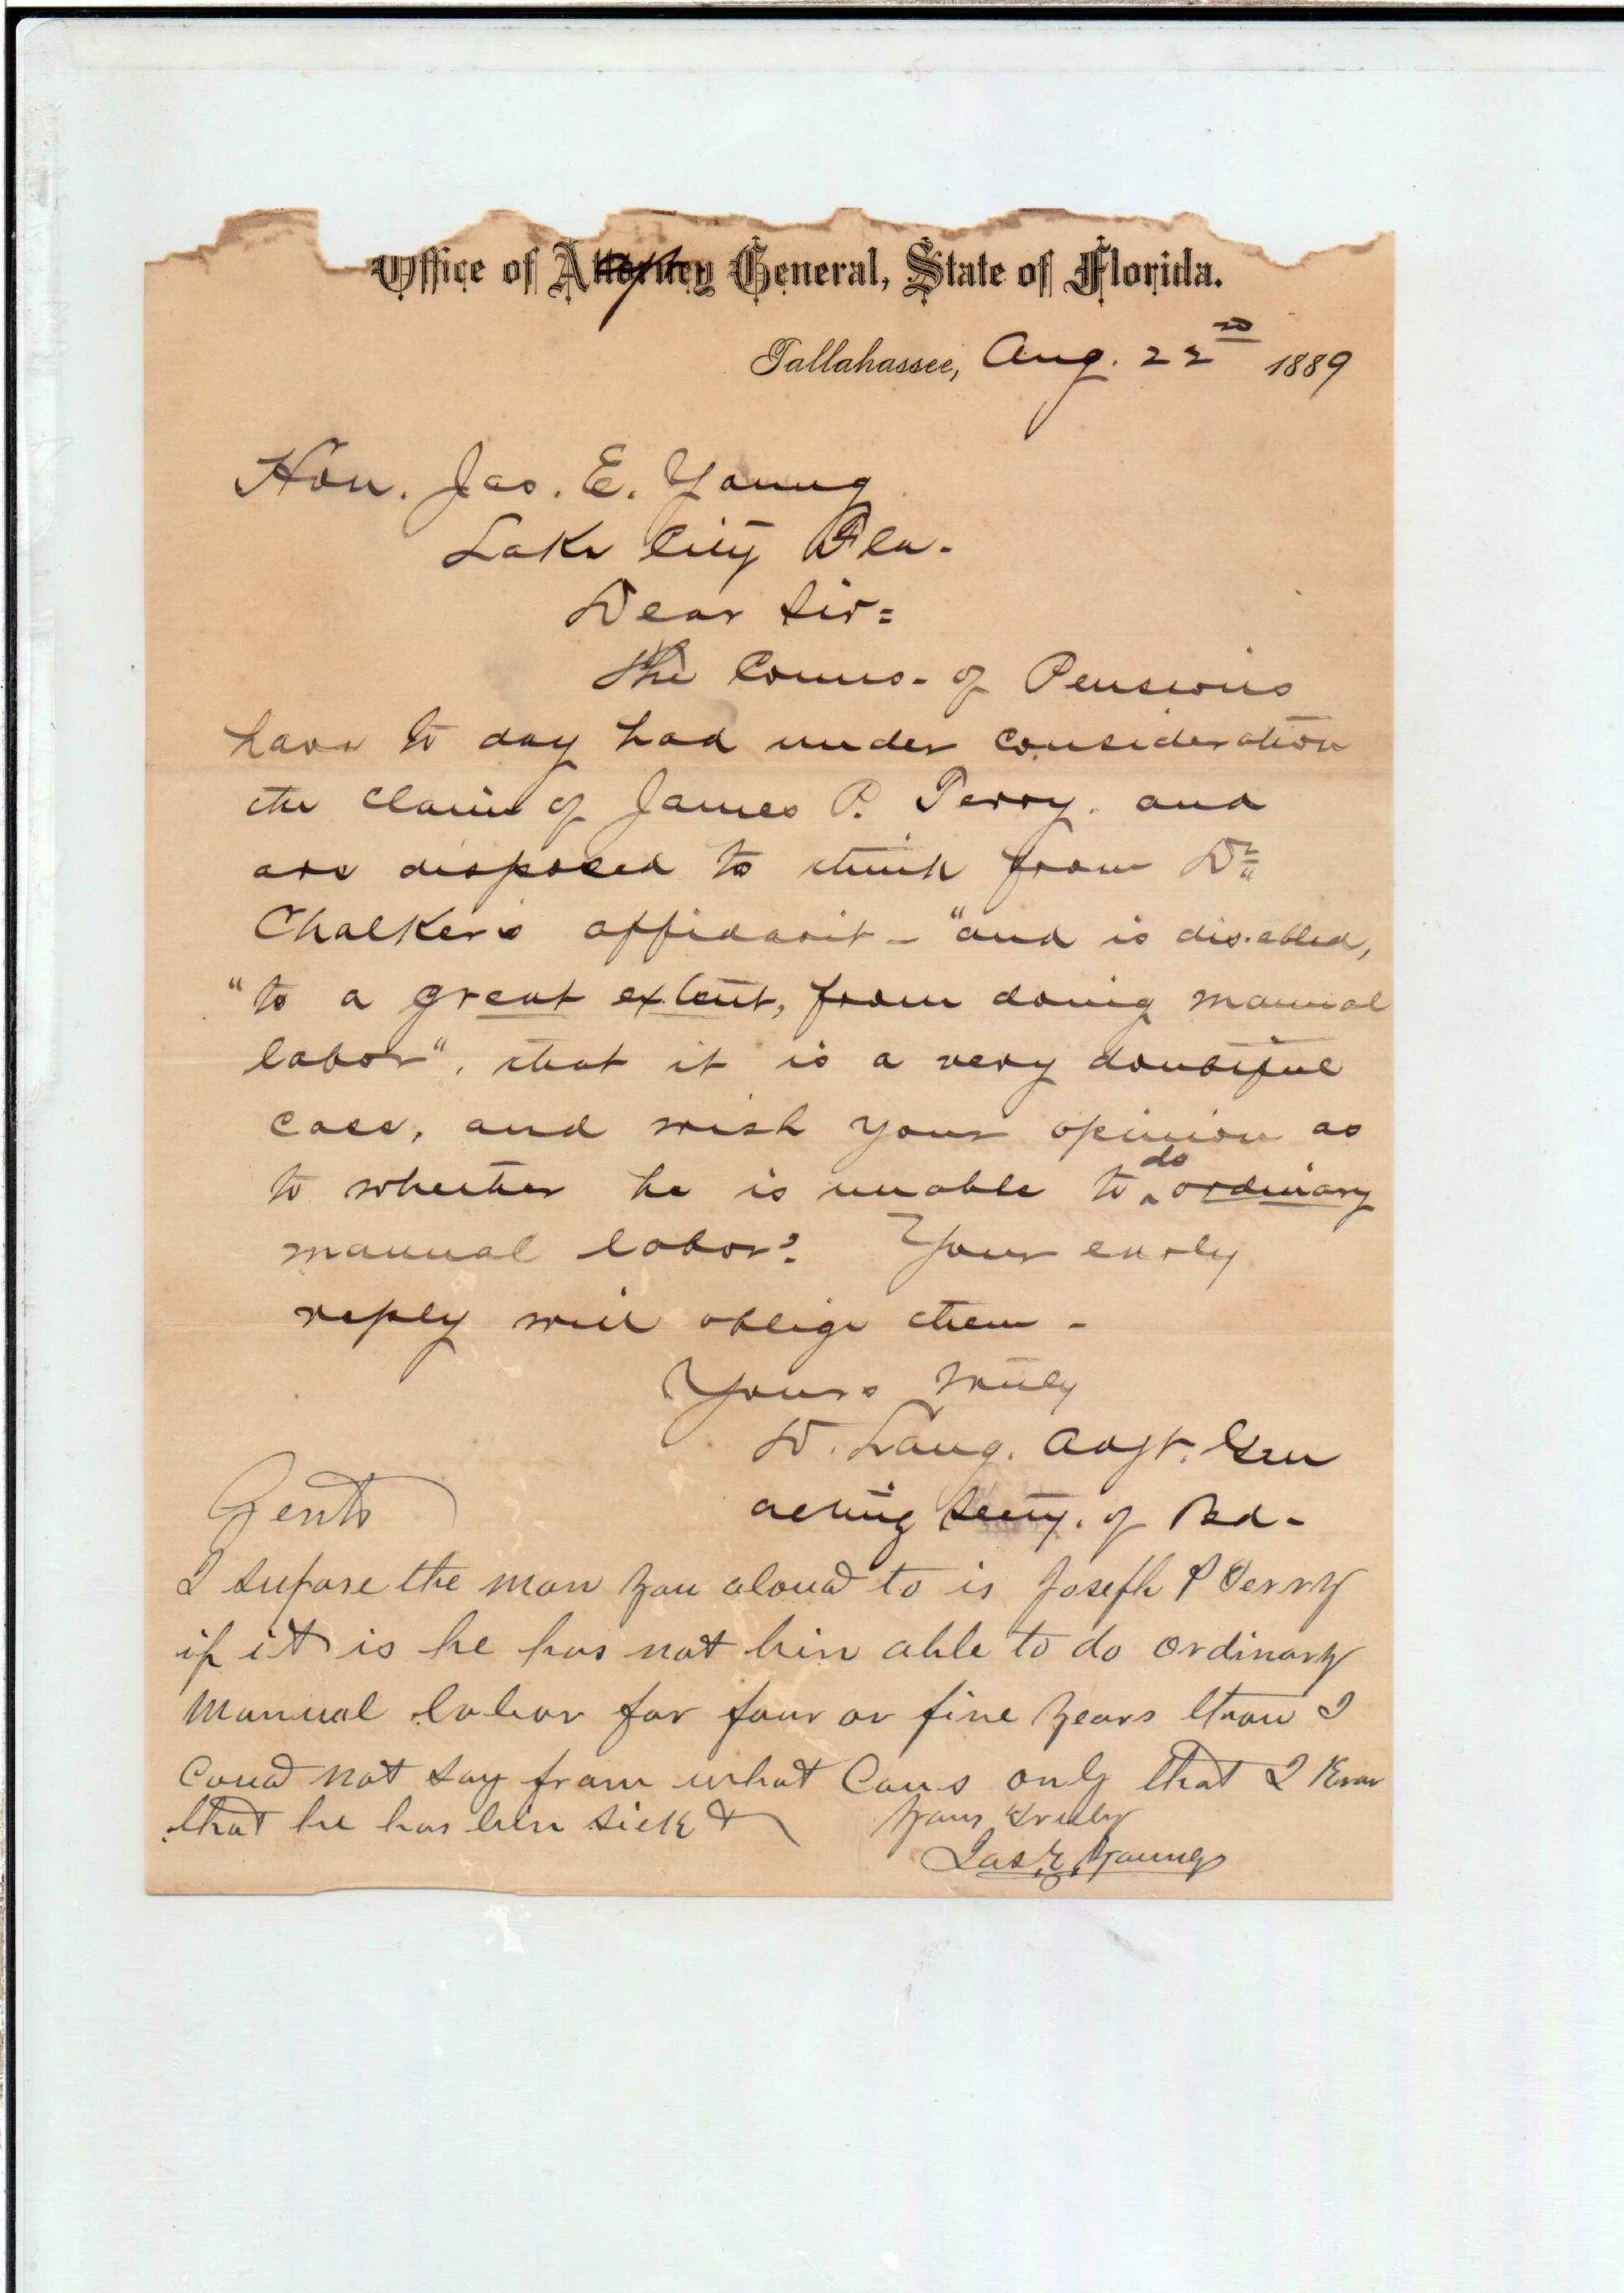 Office of Attorney General, State of Florida.
Tallahassee, Aug. 22nd 1889
Hon. Jas. E. Young
Lake City Fla.
Dear Sir=
The Comms. of Pensions
have to day had under consideration
the claim of James P. Perry. and
are disposed to think from Dr
Chalker's affidavit - "and is dis.abled,
"to a great extent, from doing manual
labor", that it is a very doubtful
case, and wish your opinion as
to whether he is unable to do ordinary
manual labor? Your early
reply will oblige them -
Yours truly
D. Lang. Adjt. Gen
acting Secty. of Bd-
Gents
I supose the man you aloud to is Joseph P Perry
if it is he has not bin able to do ordinary
Manual labor for four or five years
Coud not say from what Caus only that I Know
that he has bin sick &
yours truly
Jas. E. Young